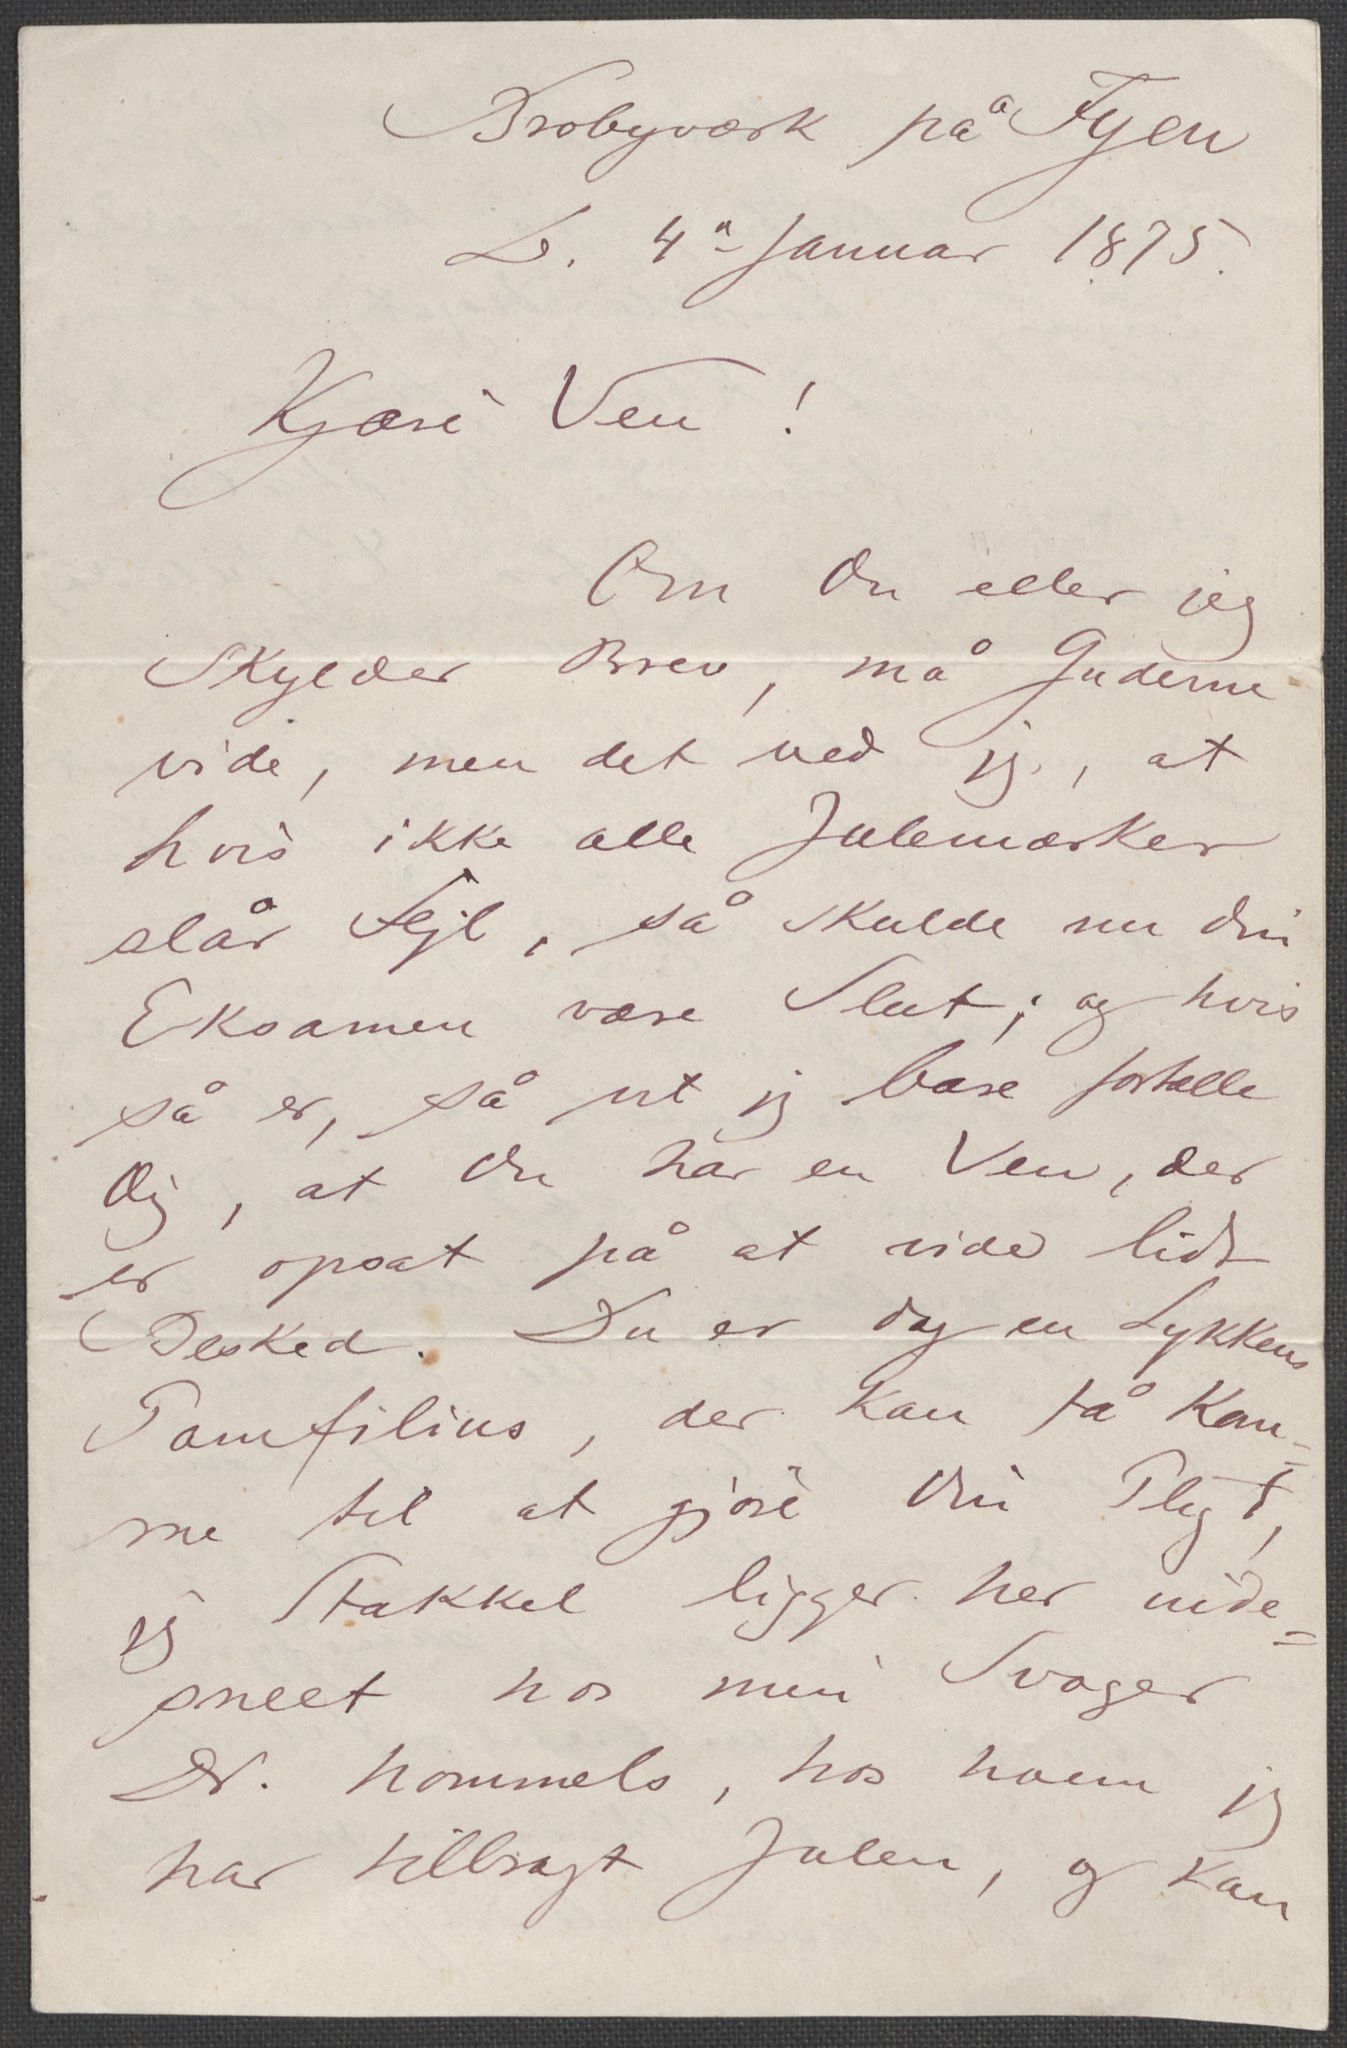 Brobyværk på Fyen
D. 4ᵈᵉ Januar 1875.
Kjære Ven!
Om Du eller jeg
skylder Brev, må Guderne
vide, men det ved jeg, at
hvis ikke alle Julemærker
slår Fejl, så skulde nu din
Eksamen være Slut; og hvis
så er, så vil jeg bare fortælle
Dig, at Du har en Ven, der
er opsat på at vide lidt
Besked. Du er dog en Lykkens
Pamfilius, der kan få Kom=
me til at gjøre din Pligt,
jeg Stakkel ligger her nede=
sneet hos min Svoger
Dr. Hommels, hos hvem jeg
har tilbragt Julen, og kan